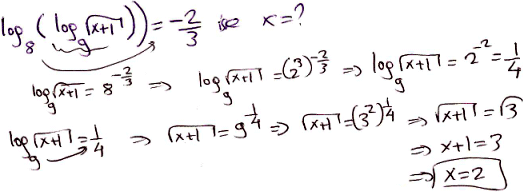 log₈(log₉√(x+1)) = -2/3 ise x=?
log₉√(x+1) = 8^(-2/3) ⇒ log₉√(x+1) = (2³)^(-2/3) ⇒ log₉√(x+1) = 2⁻² = 1/4
log₉√(x+1) = 1/4 ⇒ √(x+1) = 9^(1/4) ⇒ √(x+1) = (3²)^(1/4) ⇒ √(x+1) = √3
⇒ x+1 = 3
⇒ x=2